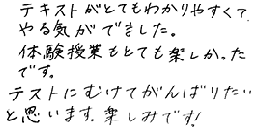 テキストがとてもわかりやすくて
やる気がでました。
体験授業もとても楽しかった
です。
テストにむけてがんばりたい
と思います。楽しみです!